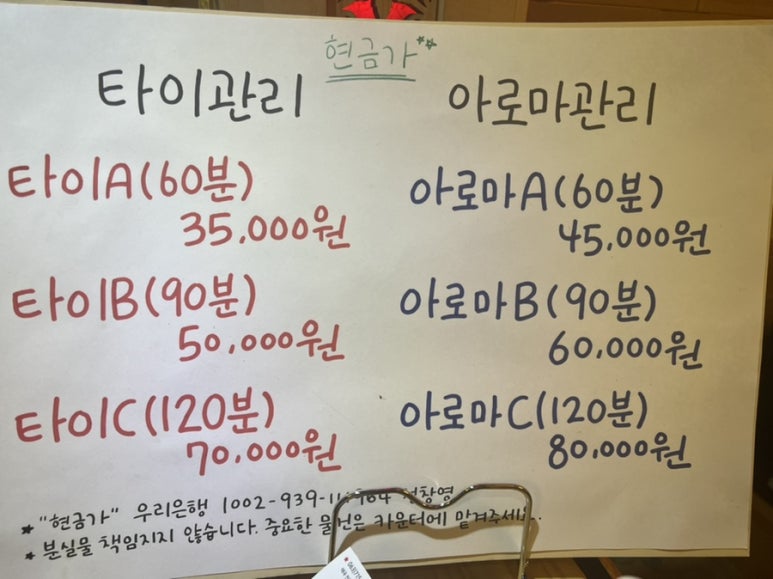 현금가**
타이관리
타이A(60분)
35,000원
타이B(90분)
50,000원
타이C(120분)
70,000원
아로마관리
아로마A(60분)
45,000원
아로마B(90분)
60,000원
아로마C(120분)
80,000원
* "현금가" 우리은행 1002-939-
* 분실물 책임지지 않습니다. 중요한 물건은 카운터에 맡겨주세요.